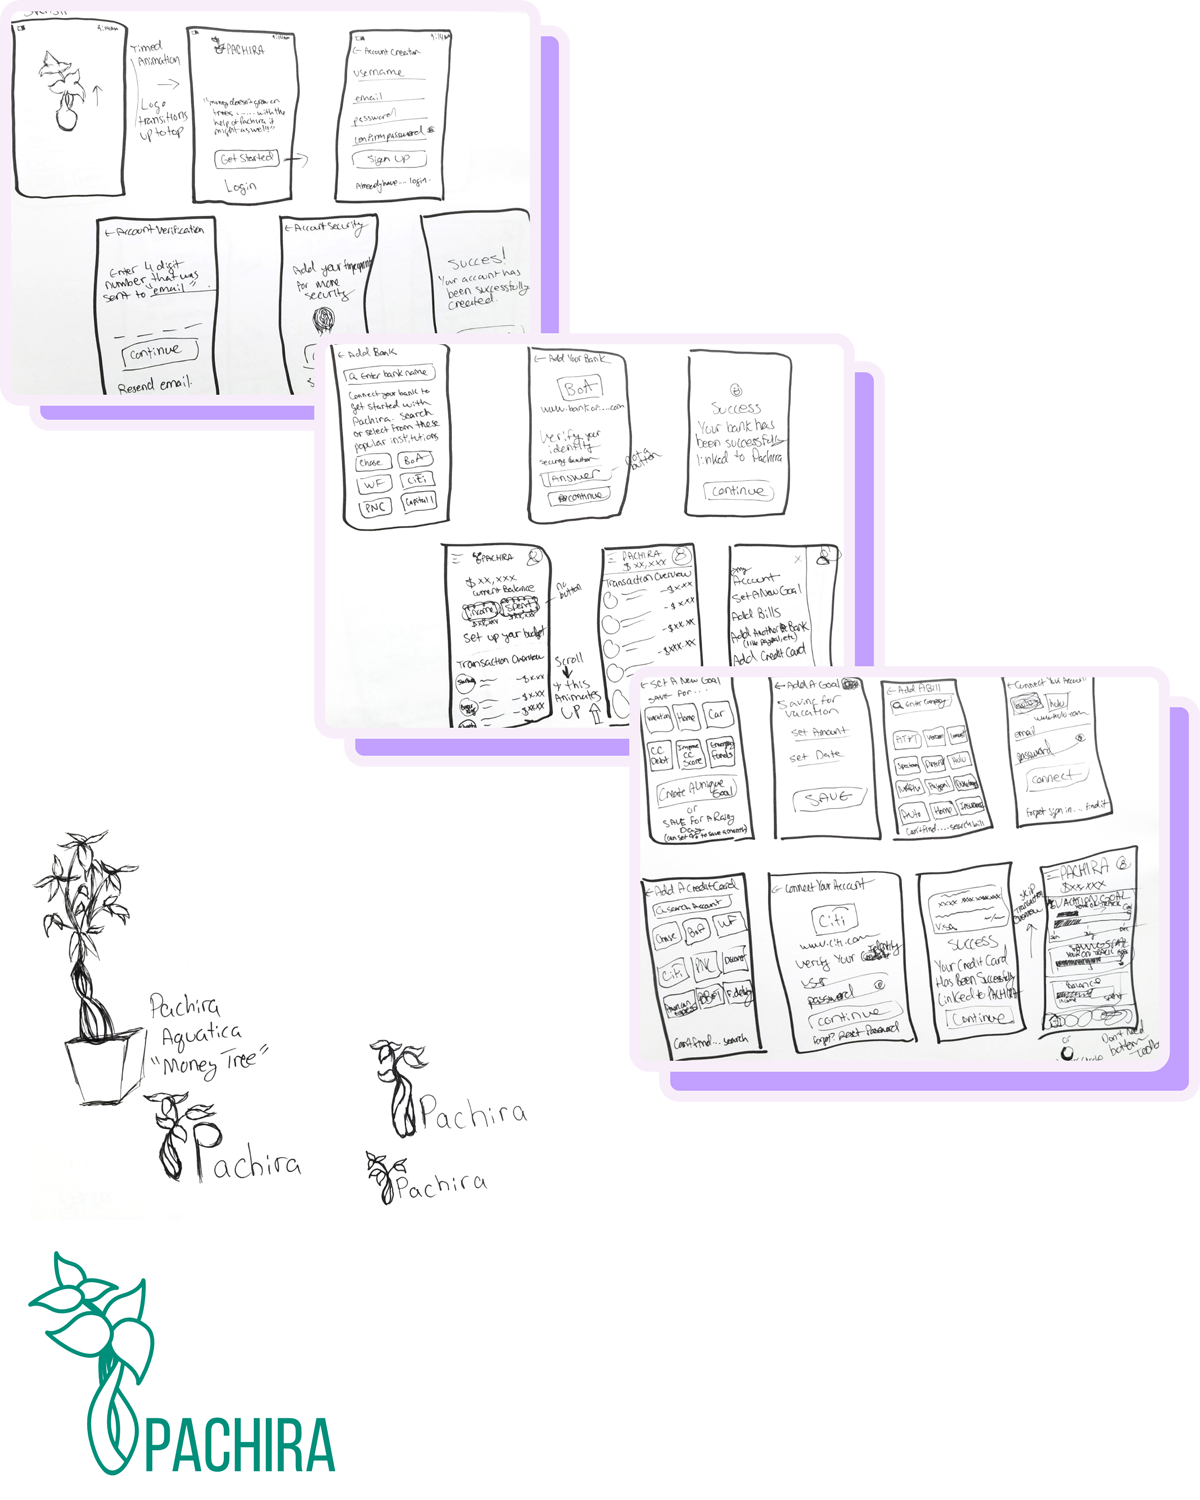 Timed
Animation
Logo
transitions
up to top
PACHIRA
"money doesn't grow on
trees ...... with the
help of Pachira it
might as well!"
Get Started
Login
← Account Creation
username
email
password
confirm password
Sign Up
Already have ... login
← Account Verification
Enter 4 digit
number that was
sent to "email"
Continue
Resend email
← Account Security
Add your fingerprint
for more
security
Succes!
Your account has
been successfully
created.
← Add Bank
Enter bank name
Connect your bank to
get started with
Pachira. Search
or select from these
popular institutions
Chase
BoA
WF
Citi
PNC
Capital 1
← Add Your Bank
BoA
www.bankof....com
Verify your
identity
Security Question
Answer
Not a
button
Continue
Success
Your bank has
been successfully
linked to Pachira
Continue
PACHIRA
$ xx,xxx
Current Balance
Income
Spent
no
button
Set up your budget
Transaction Overview
-$x.xx
-$x.xx
-$xxx
Scroll
↓
+ this
Animates
UP
PACHIRA
$ xx,xxx
Transaction Overview
-$x.xx
-$x.xx
-$x.xx
-$xx.xx
X
My
Account
Set A New Goal
Add Bills
Add Another Bank
(like paypal, etc)
Add Credit Card
← Set A New Goal
Save for...
Vacation
Home
Car
CC
Debt
Improve
CC
Score
Emergency
Funds
Create A Unique
Goal
or
SAVE For A Rainy
Day
← Add A Goal
Saving for
vacation
Set Amount
Set Date
SAVE
← Add A Bill
Enter Company
AT&T
Verizon
Spectrum
DirecTV
Hulu
Paypal
Auto
Home
Insurance
Can't find.... search bill
← Connect Your Account
hulu
www.hulu.com
email
password
Connect
Forgot sign in.... find it
← Add A Credit Card
Search Account
Chase
BoA
WF
Citi
PNC
Discover
American
Express
BB&T
Fidelity
Can't find... search
← Connect Your Account
Citi
www.citi.com
Verify Your Identity
user
password
Continue
Forgot? Reset Password
xxxx xxx xxx xxx
VISA
SUCCESS
Your Credit Card
Has Been Successfully
Linked to PACHIRA
Continue
SKIP
TRANSACTION
OVERVIEW
PACHIRA
$xx,xxx
VACATION GOAL
Balance
or
Don't need
bottom
Pachira
Aquatica
"Money Tree"
Pachira
Pachira
Pachira
PACHIRA